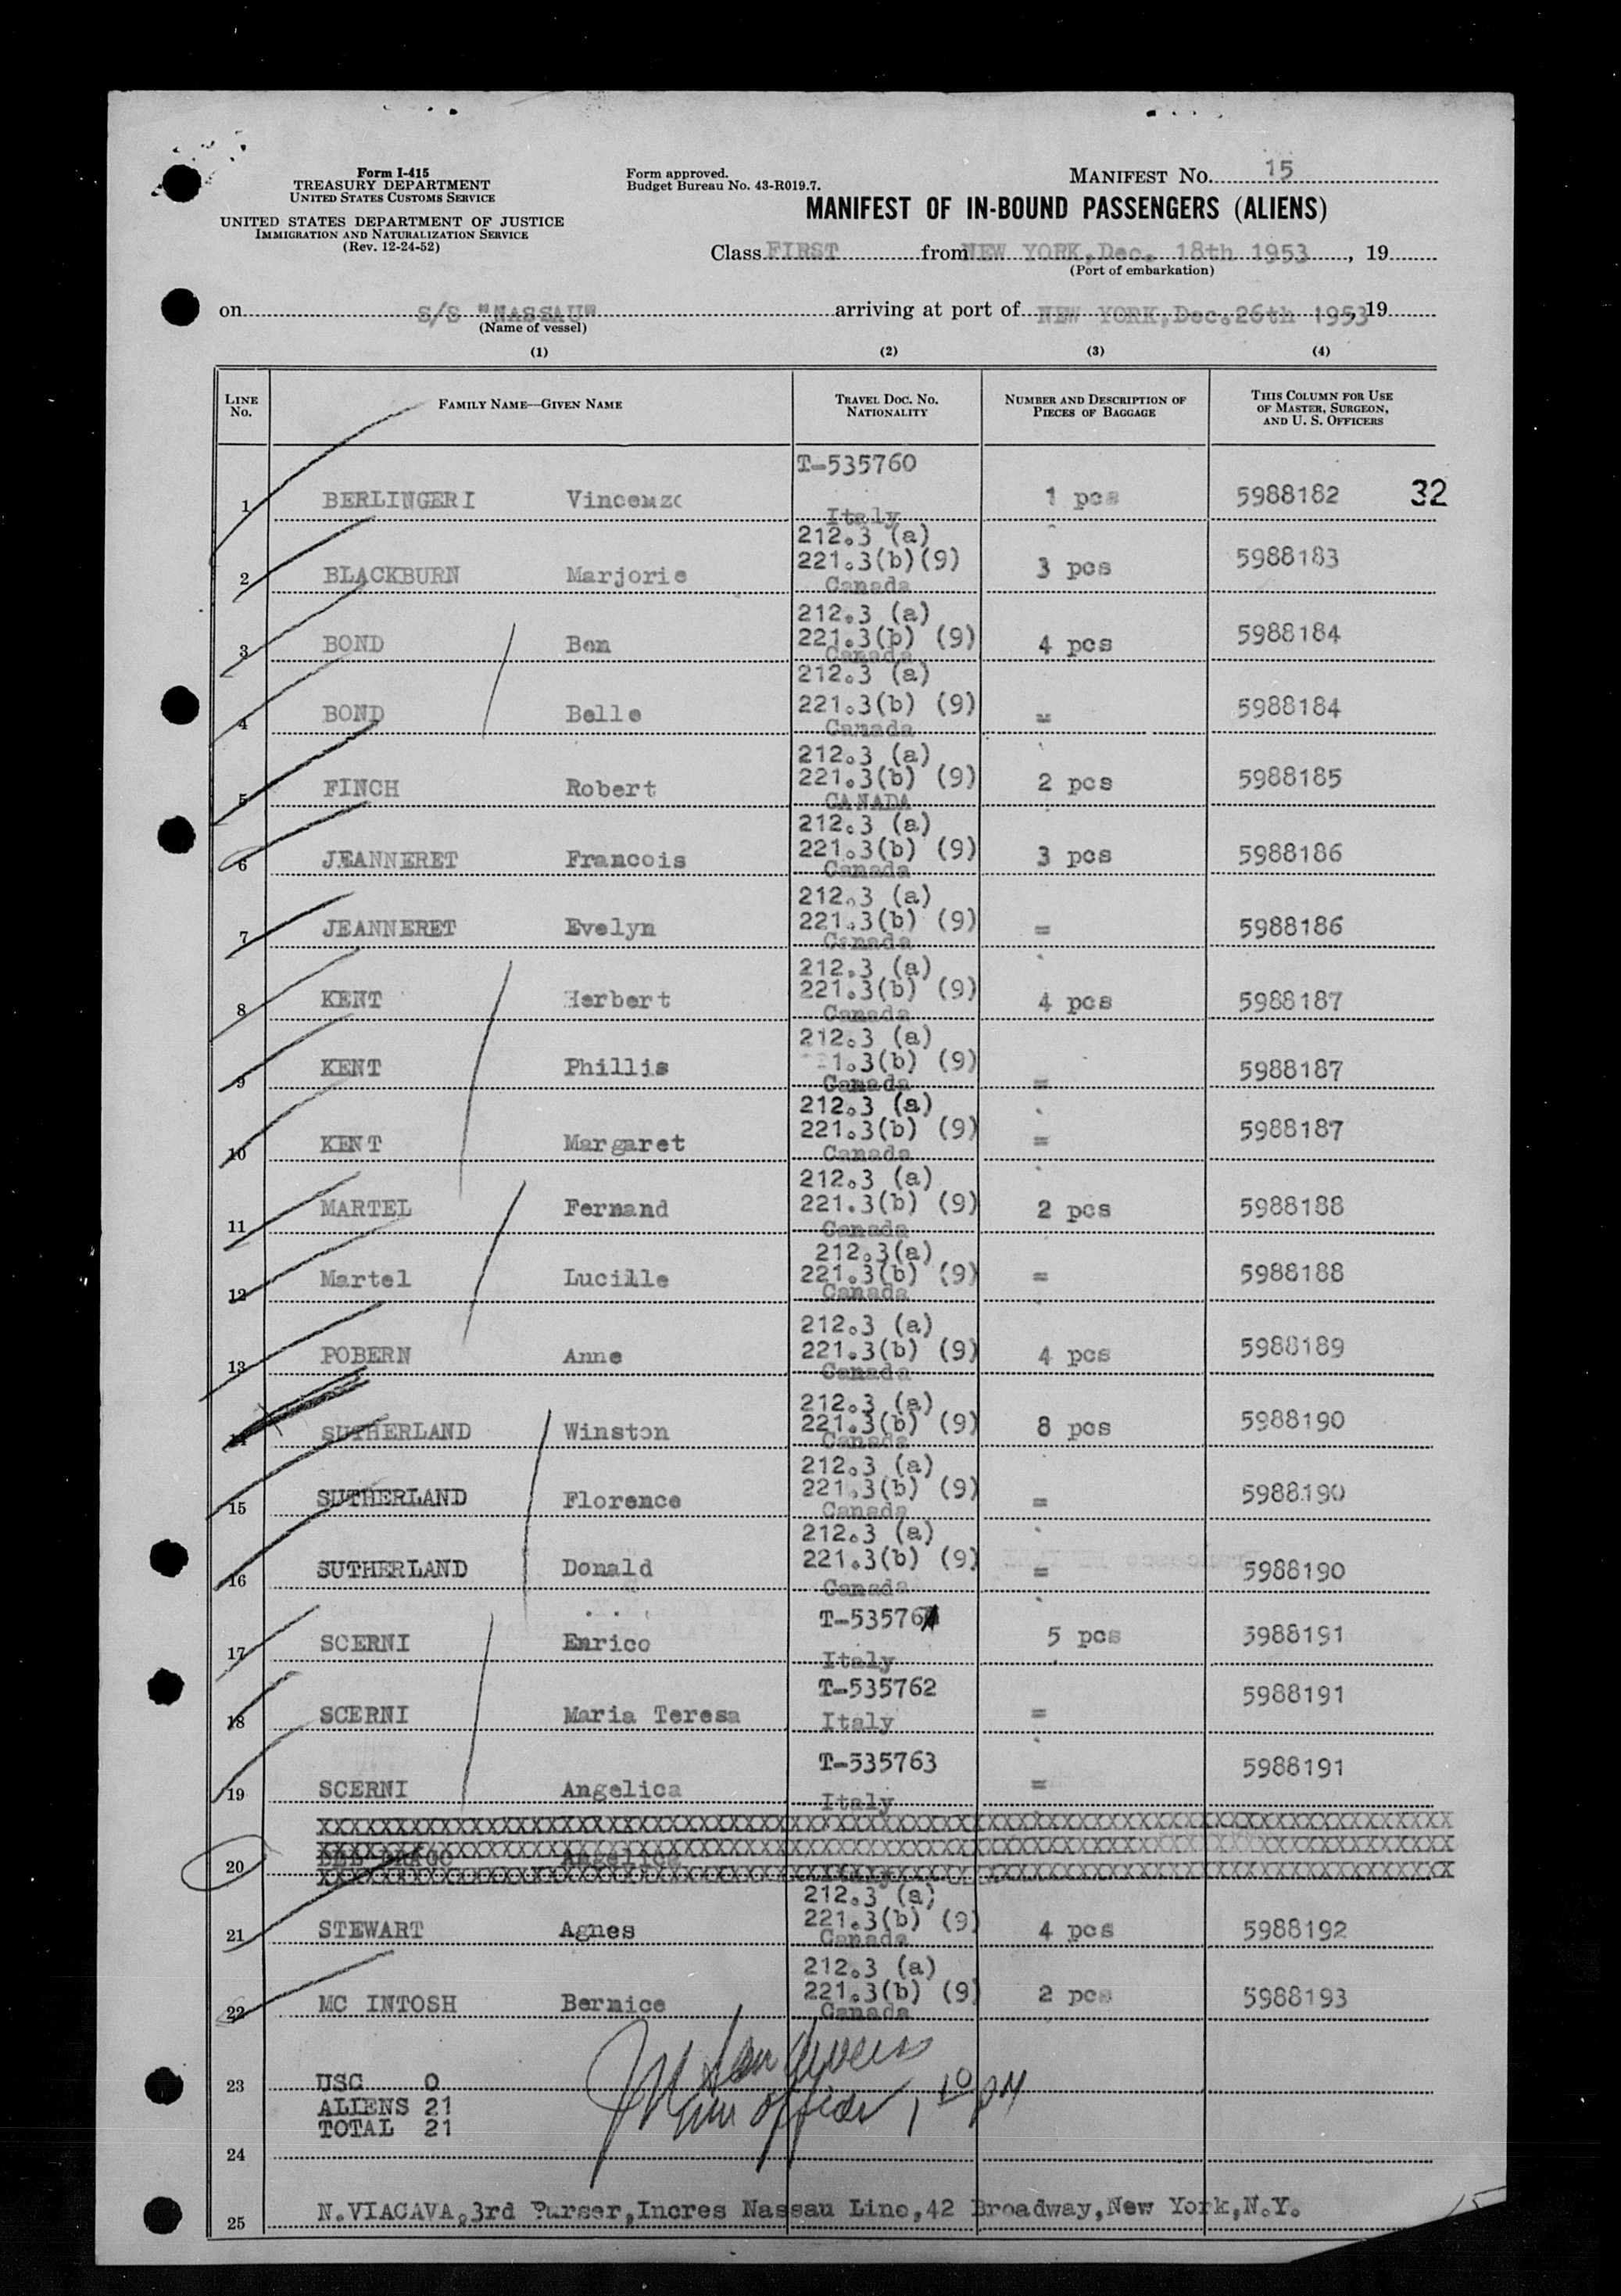 Form I-415
TREASURY DEPARTMENT
UNITED STATES CUSTOMS SERVICE
UNITED STATES DEPARTMENT OF JUSTICE
IMMIGRATION AND NATURALIZATION SERVICE
(Rev. 12-24-52)
Form approved.
Budget Bureau No. 43-R019.7.
MANIFEST NO. 15
MANIFEST OF IN-BOUND PASSENGERS (ALIENS)
Class FIRST from NEW YORK, Dec. 18th 1953, 19
(Port of embarkation)
on S/S "NASSAU" arriving at port of NEW YORK, Dec. 26th 1953, 19
(Name of vessel)
(1) (2) (3) (4)
LINE No. FAMILY NAME—GIVEN NAME TRAVEL DOC. NO. NATIONALITY NUMBER AND DESCRIPTION OF PIECES OF BAGGAGE THIS COLUMN FOR USE OF MASTER, SURGEON, AND U. S. OFFICERS
T-535760
1 BERLINGERI Vincenzo 1 pcs 5988182 32
Italy
212.3 (a)
221.3(b)(9)
2 BLACKBURN Marjorie 3 pcs 5988183
Canada
212.3 (a)
221.3(b) (9)
3 BOND Ben 4 pcs 5988184
Canada
212.3 (a)
221.3(b) (9)
4 BOND Belle = 5988184
Canada
212.3 (a)
221.3(b) (9)
5 FINCH Robert 2 pcs 5988185
CANADA
212.3 (a)
221.3(b) (9)
6 JEANNERET Francois 3 pcs 5988186
Canada
212.3 (a)
221.3(b) (9)
7 JEANNERET Evelyn = 5988186
Canada
212.3 (a)
221.3(b) (9)
8 KENT Herbert 4 pcs 5988187
Canada
212.3 (a)
221.3(b) (9)
9 KENT Phillis = 5988187
Canada
212.3 (a)
221.3(b) (9)
10 KENT Margaret = 5988187
Canada
212.3 (a)
221.3(b) (9)
11 MARTEL Fernand 2 pcs 5988188
Canada
212.3(a)
221.3(b) (9)
12 Martel Lucille = 5988188
Canada
212.3 (a)
221.3(b) (9)
13 POBERN Anne 4 pcs 5988189
Canada
212.3 (a)
221.3(b) (9)
14 SUTHERLAND Winston 8 pcs 5988190
Canada
212.3 (a)
221.3(b) (9)
15 SUTHERLAND Florence = 5988190
Canada
212.3 (a)
221.3(b) (9)
16 SUTHERLAND Donald = 5988190
Canada
T-53576
17 SCERNI Enrico 5 pcs 5988191
Italy
T-535762
18 SCERNI Maria Teresa = 5988191
Italy
T-535763
19 SCERNI Angelica = 5988191
Italy
20 DEL DRAGO Angelica
Italy
212.3 (a)
221.3(b) (9)
21 STEWART Agnes 4 pcs 5988192
Canada
212.3 (a)
221.3(b) (9)
22 MC INTOSH Bernice 2 pcs 5988193
Canada
23 USC 0
ALIENS 21
TOTAL 21
Imm officer, 1 10 PM
24
25 N.VIACAVA,3rd Purser,Incres Nassau Line,42 Broadway,New York,N.Y.
15